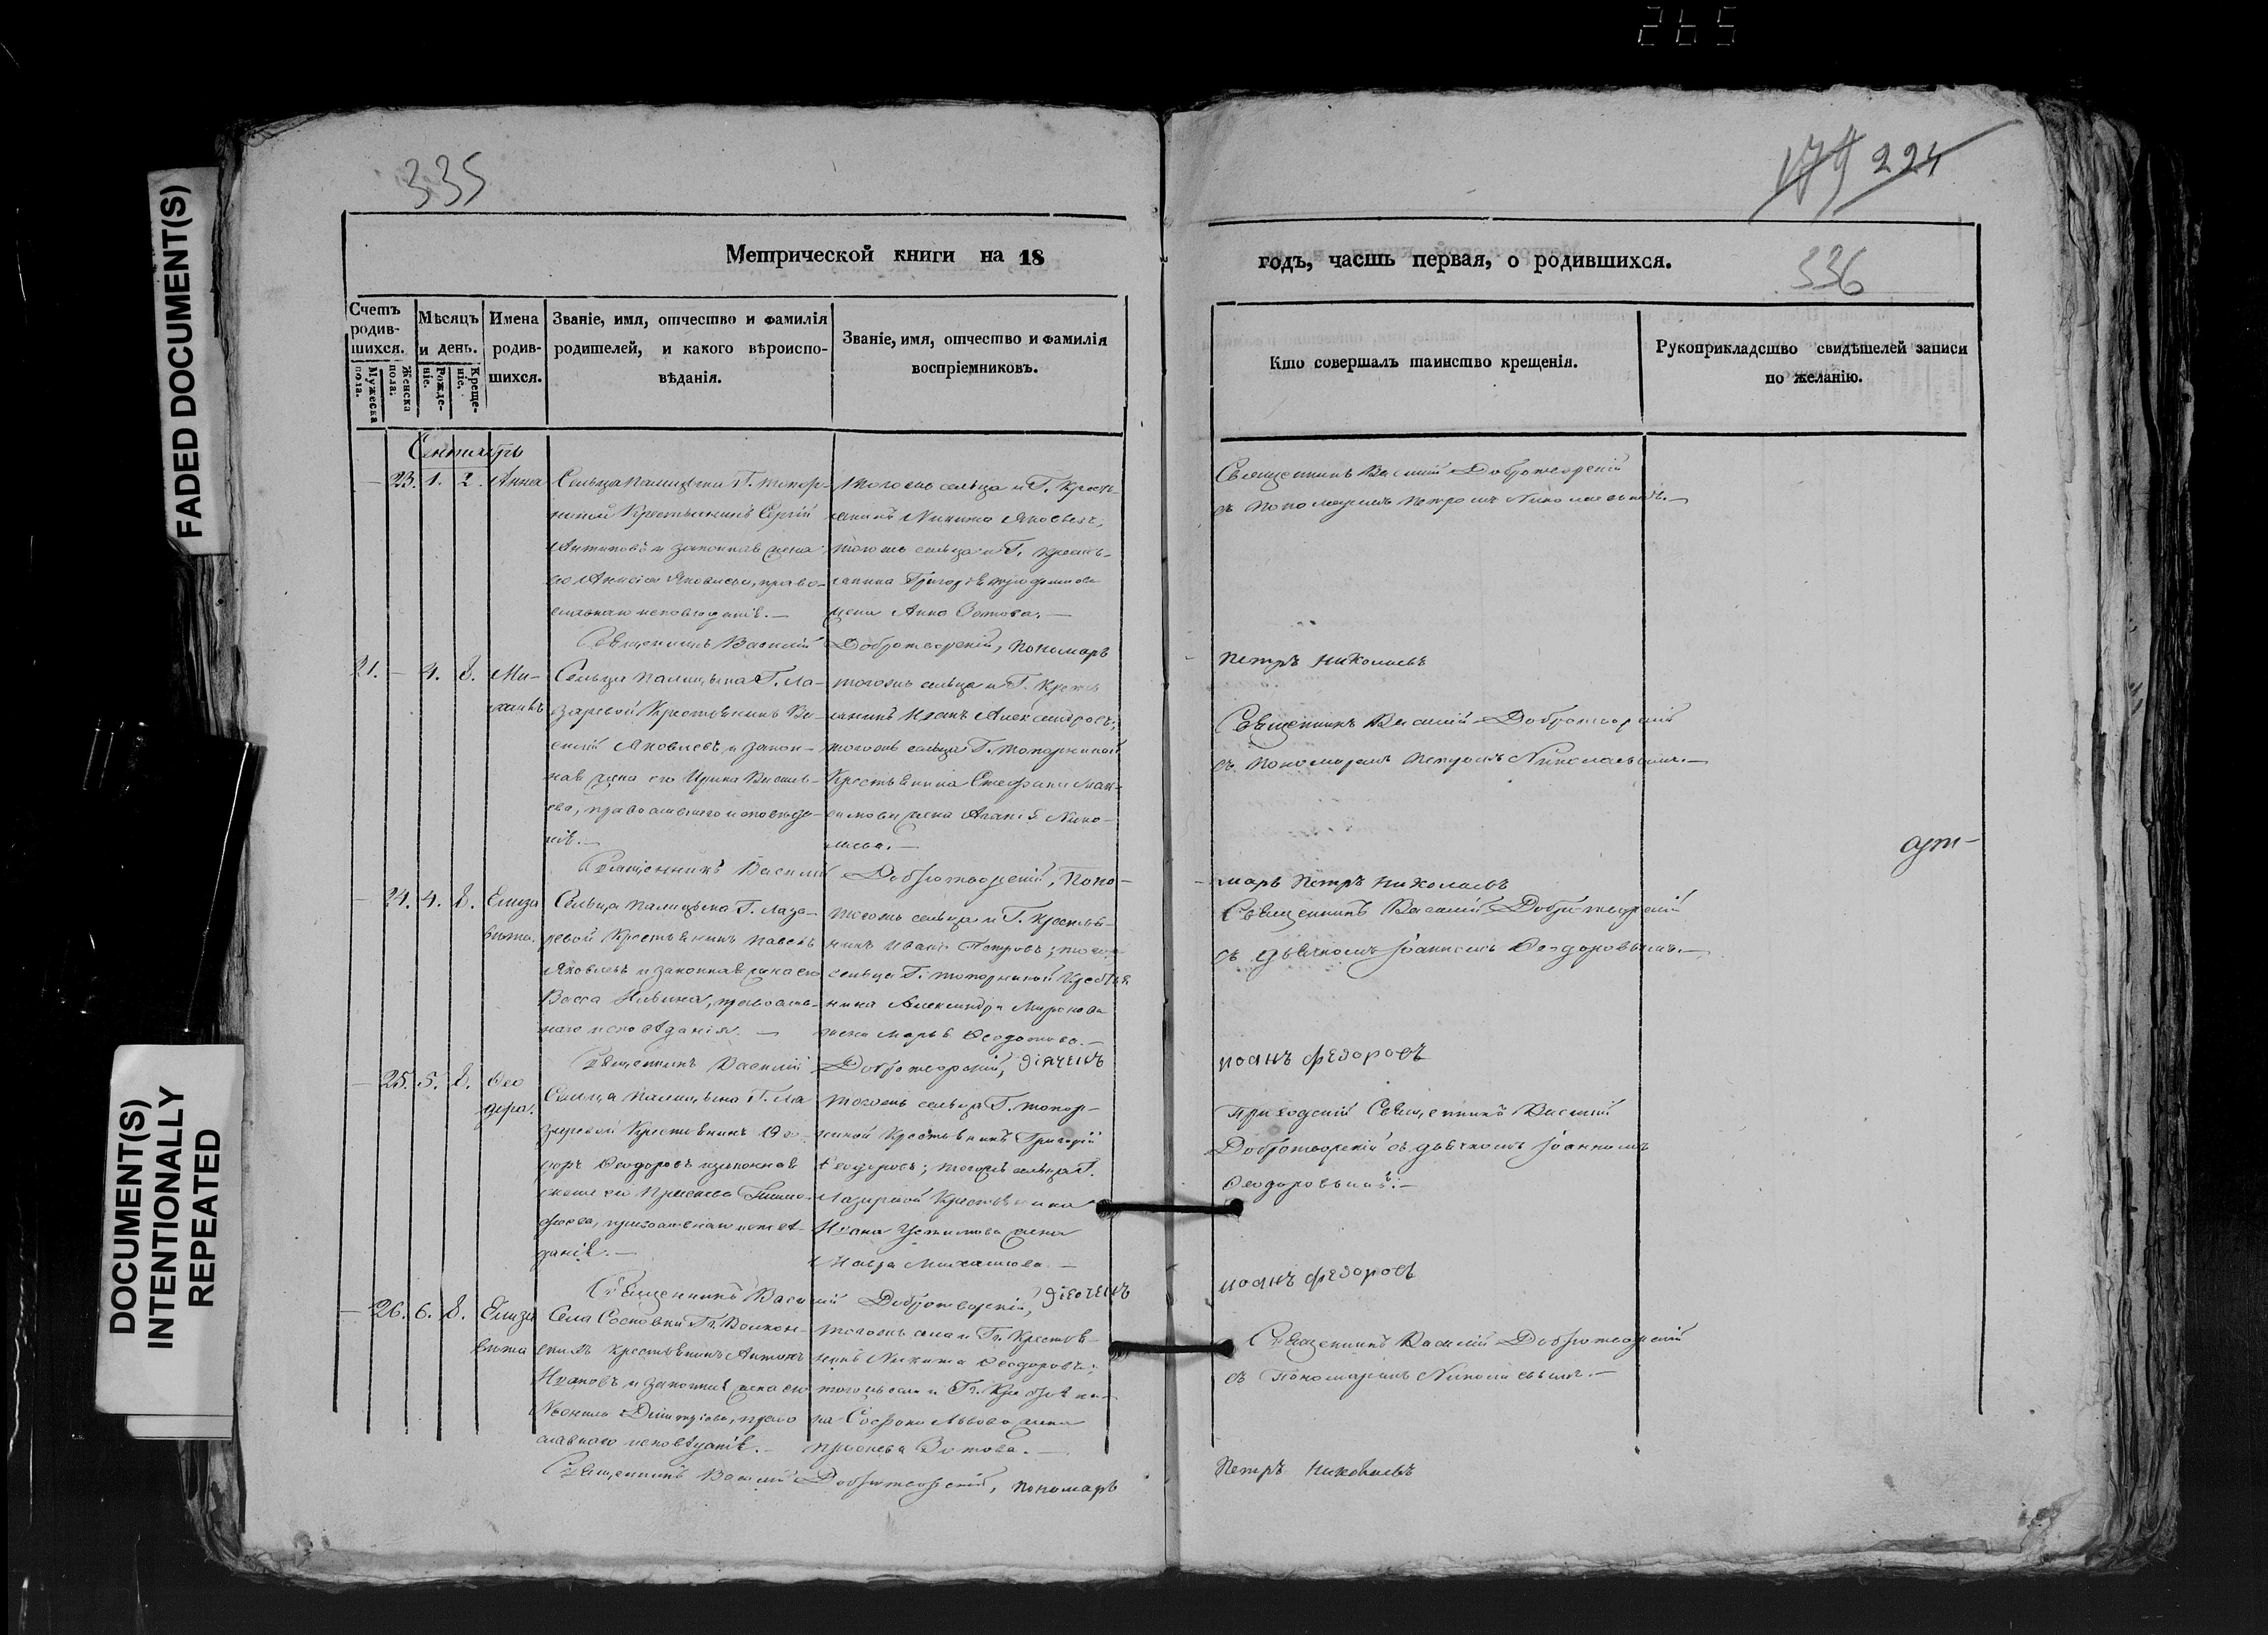 265
FADED DOCUMENT(S)
DOCUMENT(S)
INTENTIONALLY
REPEATED
335
Метрической книги на 18
Счетъ родившихся.
Мужеска пола.
Женска пола.
Мѣсяцъ и день.
Рожденіе.
Крещеніе.
Имена родившихся.
Званіе, имя, отчество и фамилія
родителей, и какого вѣроиспо-
вѣданія.
Званіе, имя, отчество и фамилія
воспріемниковъ.
Сентябрь
23. 1. 2. Анна
Сельца Палицына Г. Топор-
ниной Крестьянинъ Сергій
Антиповъ и законная жена
его Анисія Яковлева, право-
славнаго исповѣданія.—
тогожъ сельца и Г. Кресть-
янинъ Никита Яковлевъ,
тогожъ сельца и Г. крестъ-
янина Григорія
жена Анна Зотова.—
Священникъ Василій Добротворскій, пономарь
21. — 4. 8. Ми-
хаилъ
Сельца Палицына Г. Ла-
заревой Крестьянинъ Ва-
силій Яковлевъ и закон-
ная жена его Ирина Василь-
ева, православнаго исповѣда-
нія.—
тогожъ сельца и Г. Кресть
янинъ Иванъ Александровъ;
тогожъ сельца Г. Топорниной
Крестьянина Стефана Мак-
симова жена Агапія Нико-
лаева.—
Священникъ Василій Добротворскій, Поно-
— 24. 4. 8. Елиза
вета.
Сельца Палицына Г. Лаза-
ревой Крестьянинъ Павелъ
Яковлевъ и законная жена его
Васса Ильина, православ-
наго исповѣданія.—
тогожъ сельца и Г. Крестья-
нинъ Иванъ Петровъ; тогожъ
сельца Г. Топорниной Крестья
нина Александра Миронова
жена Марья Ѳеодотова.—
Священникъ Василій Добротворскій, діячекъ
— 25. 5. 8. Ѳео
дора.
Сельца Палицына Г. Ла
заревой Крестьянинъ Ѳео-
доръ Ѳеодоровъ и законная
жена его Прасковья Тимо-
феева, православнаго исповѣ-
данія.—
тогожъ сельца Г. Топор-
ниной Крестьянинъ Григорій
Ѳеодоровъ; тогожъ сельца Г.
Лазаревой Крестьянина
Ивана Устинова жена
Мавра Михайлова.—
Священникъ Василій Добротворскій, діячекъ
— 26. 6. 8. Елиза
вета
Села Сосновки Гг. Волкон-
скихъ крестьянинъ Антонъ
Ивановъ и законная жена его
Неонила Димитріева, право
славнаго исповѣданія.—
тогожъ села и Гг. Крестья-
нинъ Никита Ѳеодоровъ;
тогожъ села и Гг. Крестьяни-
на Софрона Львова жена
Прасковья Зотова.—
Священникъ Василій Добротворскій, пономарь
179 224
годъ, часть первая, о родившихся.
336
Кто совершалъ таинство крещенія.
Рукоприкладство свидѣтелей записи
по желанію.
Священникъ Василій Добротворскій
съ пономаремъ Петромъ Николаевымъ.—
Петръ Николаевъ
Священникъ Василій Добротворскій
съ Пономаремъ Петромъ Николаевымъ.—
марь Петръ Николаевъ
Священникъ Василій Добротворскій
съ дьячкомъ Іоанномъ Ѳеодоровымъ.—
иоанъ федоровъ
Приходскій Священникъ Василій
Добротворскій съ дьячкомъ Іоанномъ
Ѳеодоровымъ.—
иоанъ федоровъ
Священникъ Василій Добротворскій
съ Пономаремъ Николаевымъ.—
Петръ Николаевъ